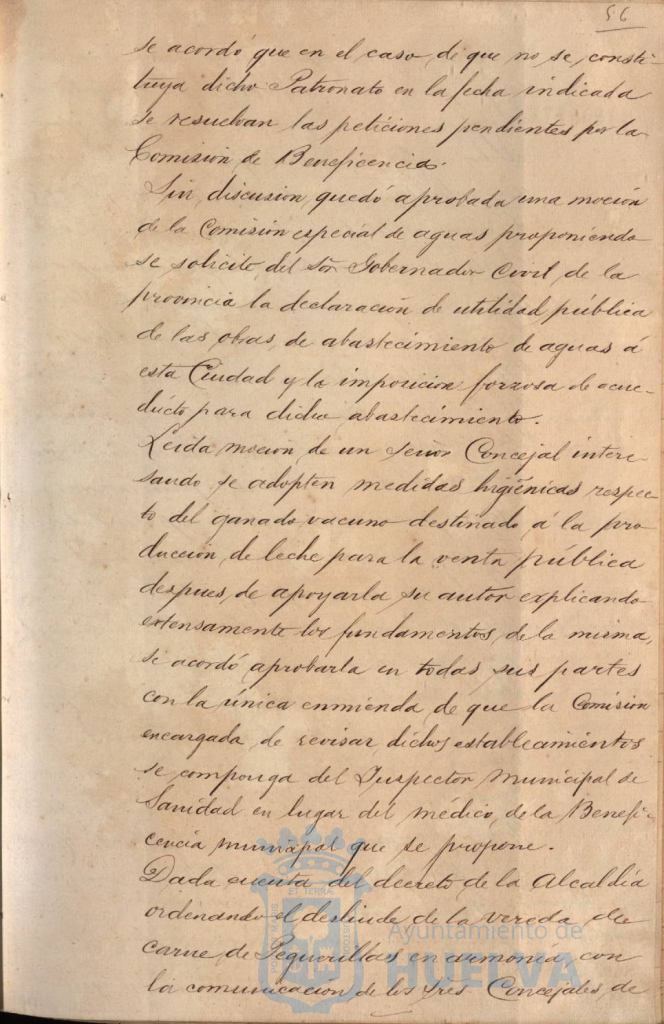 56
se acordó que en el caso de que no se consti-
tuya dicho Patronato en la fecha indicada
se resuelvan las peticiones pendientes por la
Comisión de Beneficencia.
Sin discusion quedó aprobada una moción
de la Comisión especial de aguas proponiendo
se solicite del Sor Gobernador Civil de la
provincia la declaración de utilidad pública
de las obras de abastecimiento de aguas á
esta Ciudad y la imposición forzosa de acue-
ducto para dicho abastecimiento.
Leida moción de un señor Concejal intere-
sando se adopten medidas higiénicas respec-
to del ganado vacuno destinado á la pro
ducción de leche para la venta pública
despues de apoyarla su autor explicando
extensamente los fundamentos de la misma,
se acordó aprobarla en todas sus partes
con la única enmienda de que la Comisión
encargada de revisar dichos establecimientos
se componga del Inspector Municipal de
Sanidad en lugar del médico de la Benefi-
cencia municipal que se propone.
Dada cuenta del decreto de la Alcaldía
ordenando el deslinde de la vereda de
carne de Peguerillas en armonía con
la comunicación de los tres Concejales de
Ayuntamiento de
HUELVA